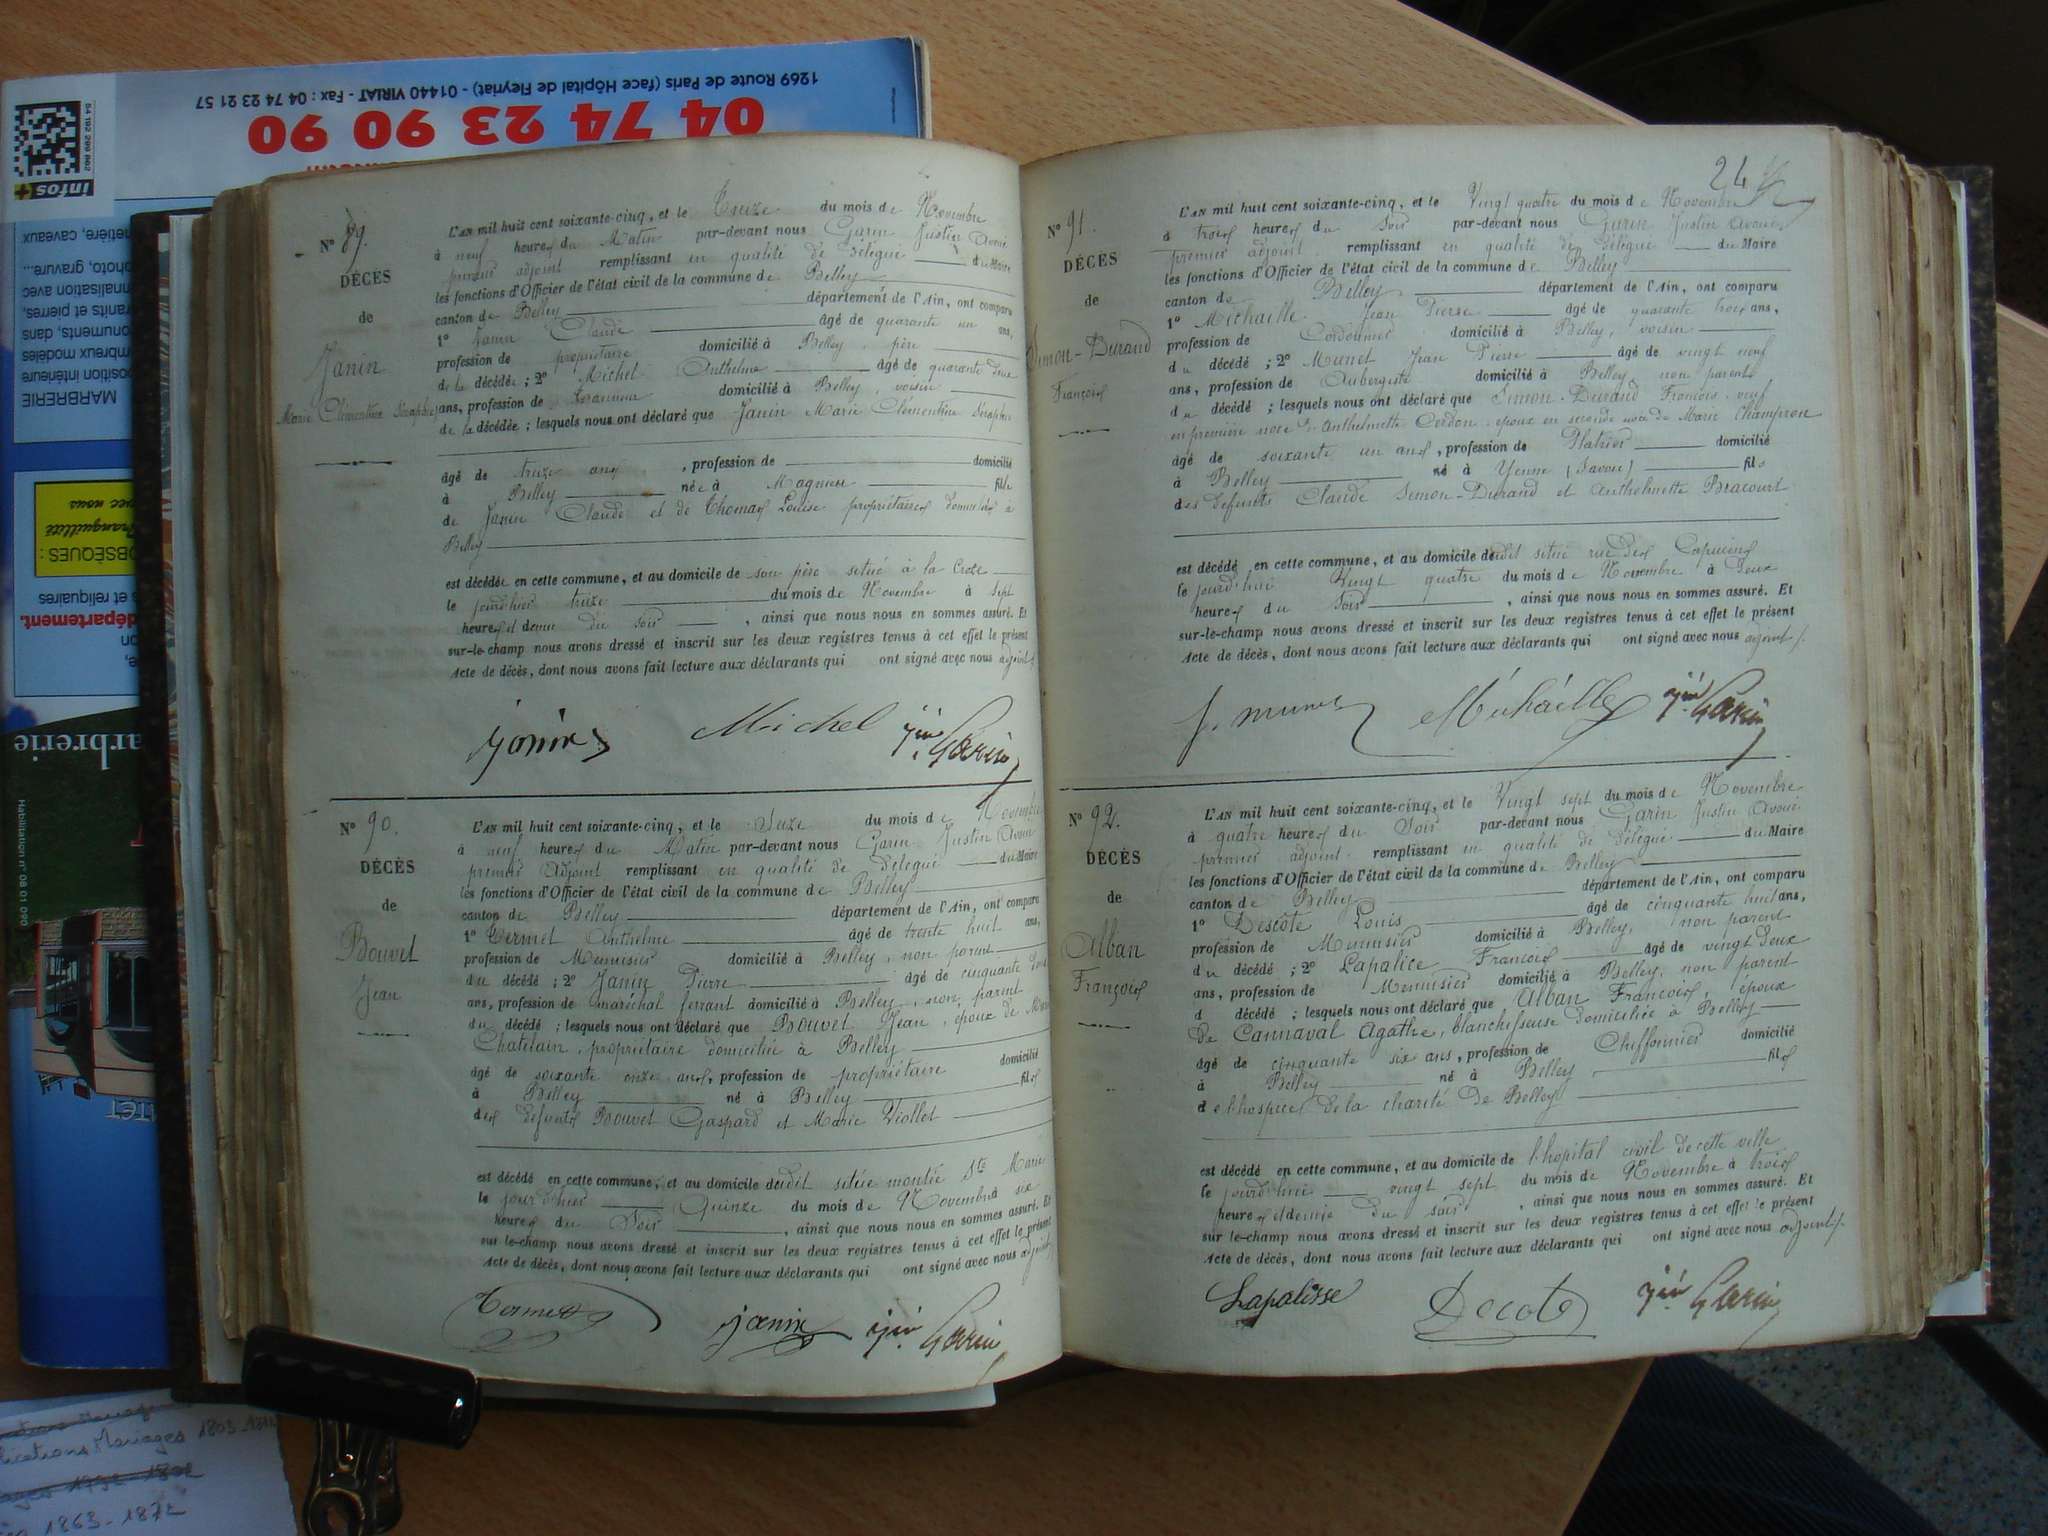 1269 Route de Paris (face Hôpital de Fleyriat) - 01440 VIRIAT - Fax : 04 74 23 21 57
04 74 23 90 90
infos+
MARBRERIE
OBSÈQUES :
département.
s et reliquaires
Habilitation n° 08 01 090
N° 89.
DÉCÈS
de
Janin
Marie Clémentine Séraphie
L'AN mil huit cent soixante-cinq, et le du mois de Novembre
à neuf heures du Matin par-devant nous Garin Justin Avoué
premier adjoint remplissant en qualité de Délégué du Maire
les fonctions d'Officier de l'état civil de la commune de Belley
canton de Belley département de l'Ain, ont comparu
1° Janin Claude âgé de quarante un ans,
profession de propriétaire domicilié à Belley, père
de la décédée ; 2° Michel Anthelme âgé de quarante deux
ans, profession de domicilié à Belley, voisin
de la décédée ; lesquels nous ont déclaré que Janin Marie Clémentine Séraphie
âgé de treize ans, profession de domicilié
à Belley née à Magnieu fille
de Janin Claude et de Thomas Louise propriétaires domiciliés à
Belley
est décédée en cette commune, et au domicile de son père situé à la Croze
le jourd'hier treize du mois de Novembre à sept
heures et demie du soir, ainsi que nous nous en sommes assuré. Et
sur-le-champ nous avons dressé et inscrit sur les deux registres tenus à cet effet le présent
Acte de décès, dont nous avons fait lecture aux déclarants qui ont signé avec nous adjoint
janin Michel jin Garin
N° 90.
DÉCÈS
de
Bouvet
Jean
L'AN mil huit cent soixante-cinq, et le Seize du mois de Novembre
à neuf heures du Matin par-devant nous Garin Justin Avoué
premier Adjoint remplissant en qualité de Délégué du Maire
les fonctions d'Officier de l'état civil de la commune de Belley
canton de Belley département de l'Ain, ont comparu
1° Termet Anthelme âgé de trente huit ans,
profession de Menuisier domicilié à Belley, non parent
du décédé ; 2° Janin Pierre âgé de cinquante
ans, profession de maréchal ferrant domicilié à Belley, non parent
du décédé ; lesquels nous ont déclaré que Bouvet Jean, époux de
Chatelain, propriétaire domiciliée à Belley
âgé de soixante onze ans, profession de propriétaire domicilié
à Belley né à Belley fils
des défunts Bouvet Gaspard et Marie Viollet
est décédé en cette commune, et au domicile dudit située montée Ste Marie
le jour d'hier Quinze du mois de Novembre à six
heures du Soir, ainsi que nous nous en sommes assuré. Et
sur-le-champ nous avons dressé et inscrit sur les deux registres tenus à cet effet le présent
Acte de décès, dont nous avons fait lecture aux déclarants qui ont signé avec nous adjoint
Termet janin jin Garin
24
N° 91.
DÉCÈS
de
Simon-Durand
François
L'AN mil huit cent soixante-cinq, et le Vingt quatre du mois de Novembre
à trois heures du Soir par-devant nous Garin Justin Avoué
premier adjoint remplissant en qualité de Délégué du Maire
les fonctions d'Officier de l'état civil de la commune de Belley
canton de Belley département de l'Ain, ont comparu
1° Michaille Jean Pierre âgé de quarante trois ans,
profession de Cordonnier domicilié à Belley, voisin
du décédé ; 2° Munet Jean Pierre âgé de vingt neuf
ans, profession de Aubergiste domicilié à Belley non parent
du décédé ; lesquels nous ont déclaré que Simon-Durand François, veuf
en première noce d'Anthelmette Cerdon, époux en seconde noce de Marie Champron
âgé de soixante un ans, profession de Platrier domicilié
à Belley né à Yenne (Savoie) fils
des défunts Claude Simon-Durand et Anthelmette Bracourt
est décédé en cette commune, et au domicile dudit situé rue des Capucins
le jourd'hui Vingt quatre du mois de Novembre à Deux
heures du Soir, ainsi que nous nous en sommes assuré. Et
sur-le-champ nous avons dressé et inscrit sur les deux registres tenus à cet effet le présent
Acte de décès, dont nous avons fait lecture aux déclarants qui ont signé avec nous adjoint
j. munet Michaille jin Garin
N° 92.
DÉCÈS
de
Alban
François
L'AN mil huit cent soixante-cinq, et le Vingt sept du mois de Novembre
à quatre heures du Soir par-devant nous Garin Justin Avoué
premier adjoint remplissant en qualité de Délégué du Maire
les fonctions d'Officier de l'état civil de la commune de Belley
canton de Belley département de l'Ain, ont comparu
1° Descôte Louis âgé de cinquante huit ans,
profession de Menuisier domicilié à Belley, non parent
du décédé ; 2° Lapalice François âgé de vingt deux
ans, profession de Menuisier domicilié à Belley, non parent
d décédé ; lesquels nous ont déclaré que Alban François, époux
de Cannaval Agathe, blanchisseuse domiciliée à Belley
âgé de cinquante six ans, profession de Chiffonnier domicilié
à Belley né à Belley fils
de l'hospice de la charité de Belley
est décédé en cette commune, et au domicile de l'hôpital civil de cette ville
le jourd'hui vingt sept du mois de Novembre à trois
heures et demie du soir, ainsi que nous nous en sommes assuré. Et
sur-le-champ nous avons dressé et inscrit sur les deux registres tenus à cet effet le présent
Acte de décès, dont nous avons fait lecture aux déclarants qui ont signé avec nous adjoint
Lapalisse Decote jin Garin
Mariages 1803-
1863-1872